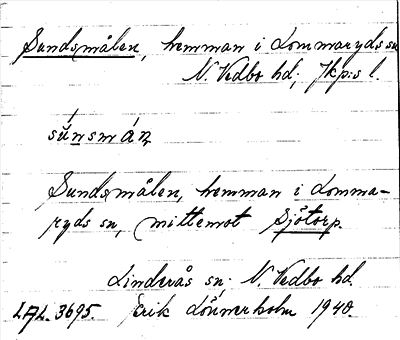 Sundsmålen, hemman i Lommaryds sn
N. Vedbo hd; Jkp:s l.
súnsmán
Sundsmålen, hemman i Lomma-
ryds sn, mittemot Sjötorp.
Linderås sn; N. Vedbo hd.
LAL. 3695. Erik Lönnerholm 1940.